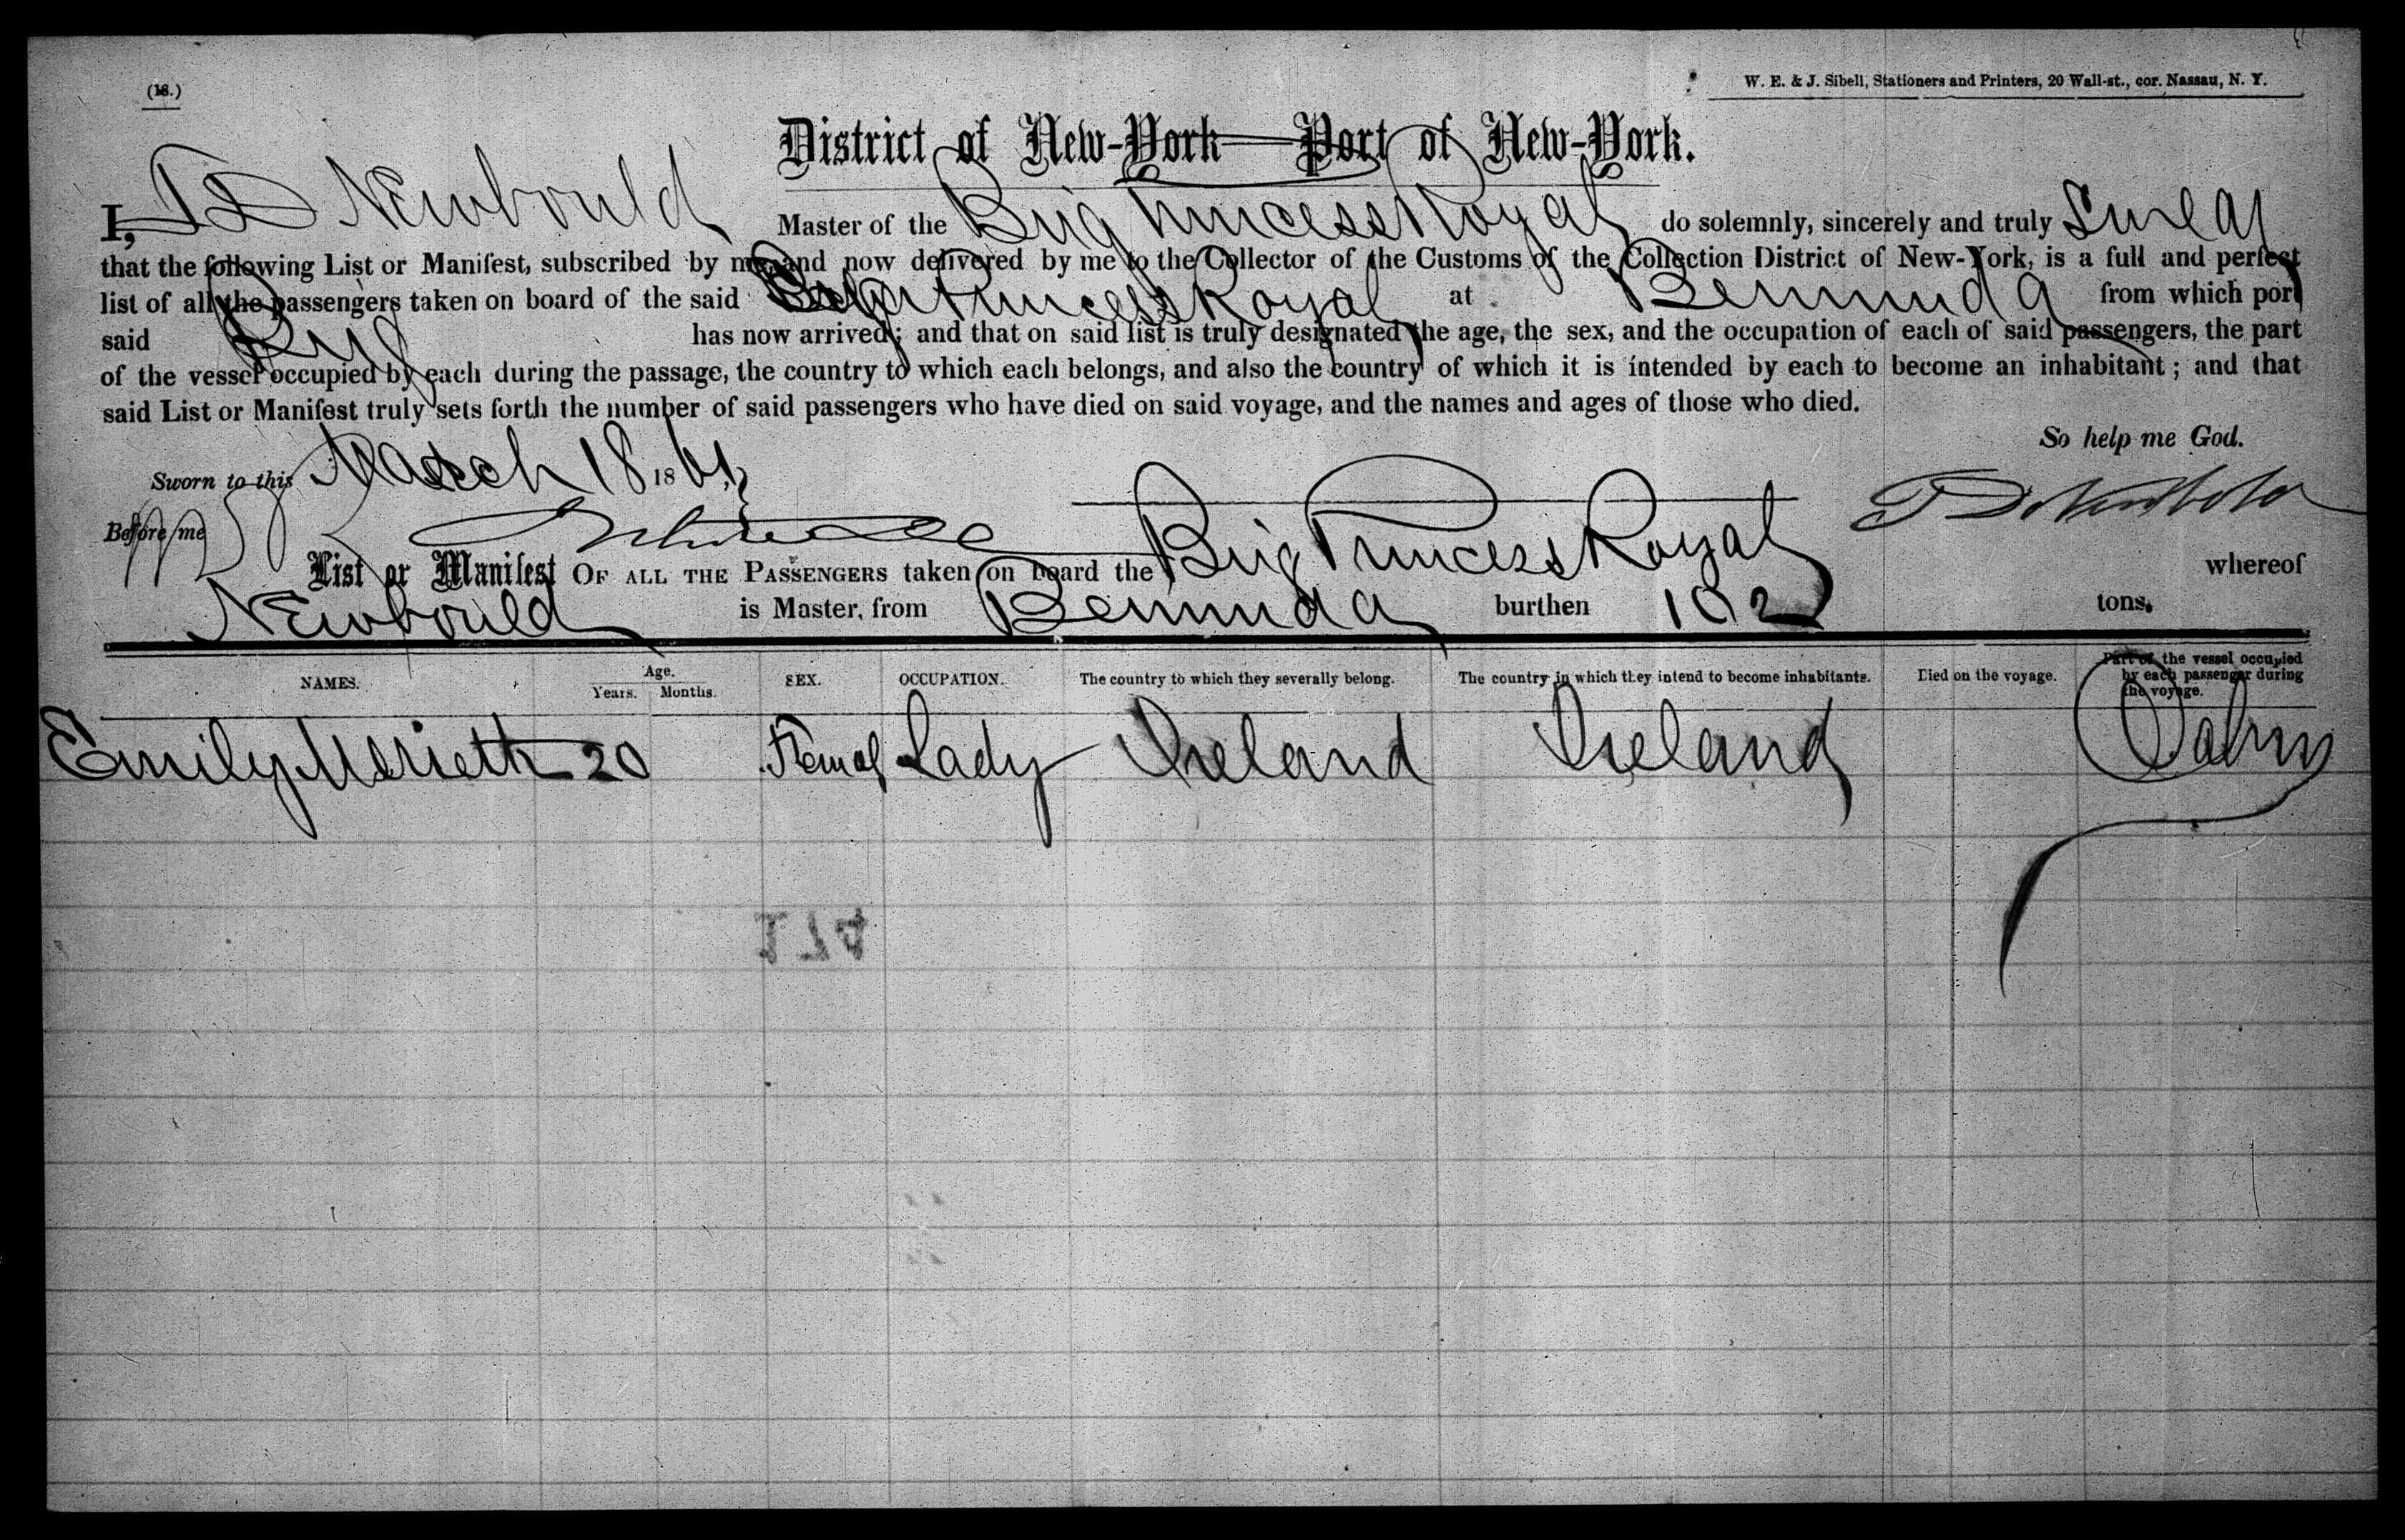 (18.)
W. E. & J. Sibell, Stationers and Printers, 20 Wall-st., cor. Nassau, N. Y.
District of New-York—Port of New-York.
I, T D Newbould Master of the Brig Princess Royal do solemnly, sincerely and truly Swear
that the following List or Manifest, subscribed by me and now delivered by me to the Collector of the Customs of the Collection District of New-York, is a full and perfect
list of all the passengers taken on board of the said Princess Royal at Bermuda from which port
said Brig has now arrived; and that on said list is truly designated the age, the sex, and the occupation of each of said passengers, the part
of the vessel occupied by each during the passage, the country to which each belongs, and also the country of which it is intended by each to become an inhabitant; and that
said List or Manifest truly sets forth the number of said passengers who have died on said voyage, and the names and ages of those who died.
So help me God.
Sworn to this March 18 1861
Before me
List or Manifest OF ALL THE PASSENGERS taken on board the Brig Princess Royal whereof
Newbould is Master, from Bermuda burthen 192 tons.
NAMES. Age. Years. Months. SEX. OCCUPATION. The country to which they severally belong. The country in which they intend to become inhabitants. Died on the voyage. Part of the vessel occupied by each passenger during the voyage.
Emily 20 Femal Lady Ireland Ireland
174